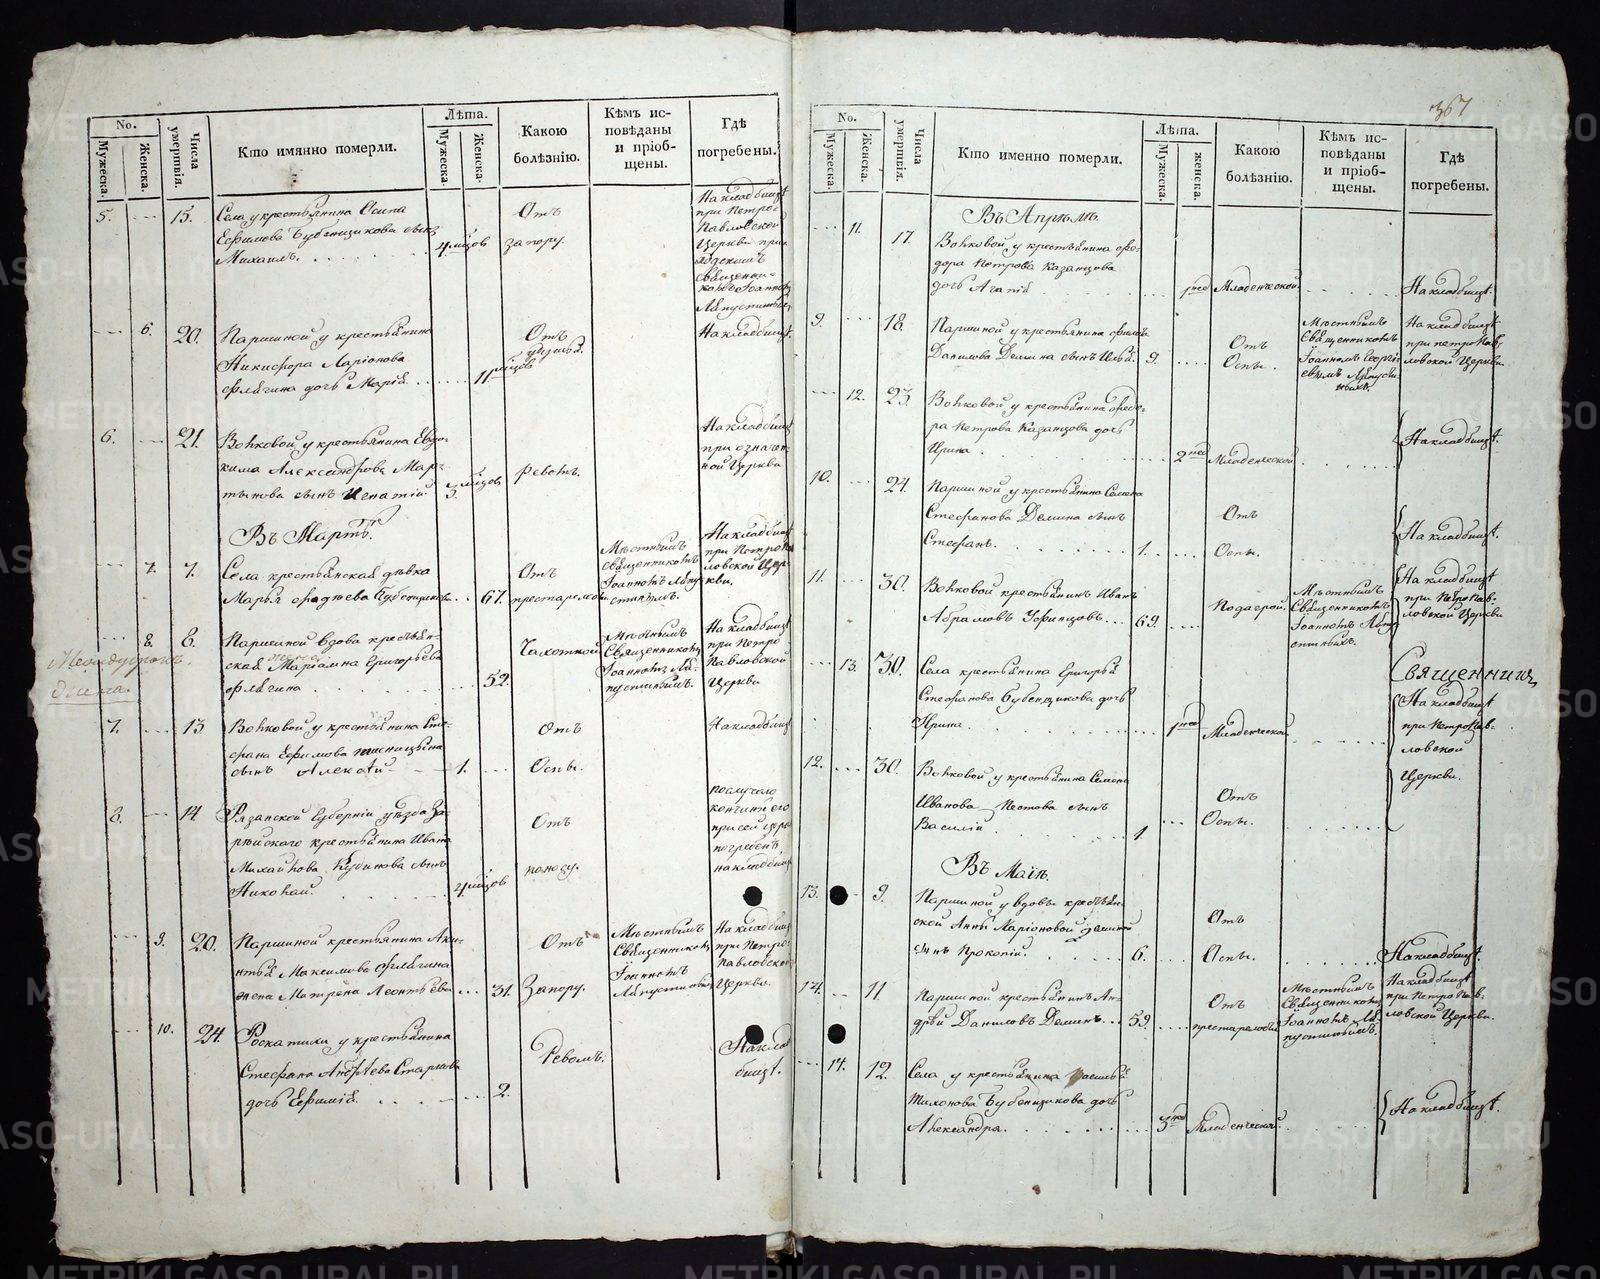 No.
Мужеска.
Женска.
Числа умертвія.
Кто имянно померли.
Лѣта.
Мужеска.
Женска.
Какою
болѣзнію.
Кѣмъ ис-
повѣданы
и пріоб-
щены.
Гдѣ
погребены.
5.
15.
Села у крестьянина Осипа
Ефимова Бубенщикова сынъ
Михаилъ.
4 мѣсцов
Отъ
запору.
На кладбищѣ
при Петро-
Павловской
Церкви
6.
20.
Паршиной у крестьянина
Никифора Ларіонова
Флягина дочь Марія
11 мѣсцов
Отъ
На кладбищѣ.
6.
21.
Волковой у крестьянина Евдо-
кима Александрова Мар-
тынова сынъ Игнатій.
3 мѣсцов
Ревотъ.
На кладбищѣ
при означен-
ной Церкви
Въ Мартѣ.
7.
7.
Села крестьянская дѣвка
Марья Фадѣева Бубенщикова
67.
Отъ
престарелости
Мѣстнымъ
священникомъ
Іоанномъ Ляпу-
стинымъ.
На кладбищѣ
при Петропав-
ловской Цер-
кви.
8.
8.
Паршиной вдова крестьян-
ская Маріамна Григорьева
Флягина
52.
Чахоткой
Мѣстнымъ
Священникомъ
Іоанномъ Ля-
пустинымъ.
На кладбищѣ
при Петро
Павловской
Церкви
7.
13.
Волковой у крестьянина Сте-
фана Ефимова Пшеницына
сынъ Алексѣй
1.
Отъ
Оспы.
На кладбищѣ
8.
14.
Рязанской Губерніи уѣзда За-
райского крестьянина Ивана
Михайлова Кубикова сынъ
Николай.
4 мѣсцов
Отъ
поносу.
по случаю
кончины его
при сей церк
погребенъ
на кладбищѣ
9.
20.
Паршиной крестьянина Аки-
нтья Максимова Флягина
жена Матрёна Леонтьева
31.
Отъ
Запору.
Мѣстнымъ
Священникомъ
Іоанномъ
Ляпустинымъ
На кладбищѣ
при Петро-
Павловской
Церкви.
10.
24.
Роскатихи у крестьянина
Стефана Андрѣева Старкова
дочь Евфимія.
2.
Ревомъ.
На клад
бищѣ.
367
No.
Мужеска.
Женска.
Числа умертвія.
Кто именно померли.
Лѣта.
Мужеска.
женска.
Какою
болѣзнію.
Кѣмъ ис-
повѣданы
и пріоб-
щены.
Гдѣ
погребены.
Въ Апрѣлѣ.
11.
17.
Волковой у крестьянина Фе-
дора Петрова Казанцова
дочь Агапія
1 нед
Младенческой
На кладбищѣ.
9.
18.
Паршиной у крестьянина Филипа
Данилова Демина сынъ Илья.
9.
Отъ
Оспы.
Мѣстнымъ
Священникомъ
Іоанномъ Георгі-
евымъ Ляпусти-
нымъ.
На кладбищѣ
при петропав-
ловской Церкви.
12.
23.
Волковой у крестьянина Федо-
ра Петрова Казанцова дочь
Ирина
2 нед
Младенческой
На кладбищѣ.
10.
24.
Паршиной у крестьянина Семена
Стефанова Демина сынъ
Стефанъ.
1.
Отъ
Оспы.
На кладбищѣ.
11.
30.
Волковой крестьянинъ Иванъ
Абрамовъ Уфинцовъ.
69.
Подагрой.
Мѣстнымъ
Священникомъ
Іоанномъ Ляпу-
стинымъ.
На кладбищѣ
при Петропав-
ловской Церкви
Священникъ
13.
30.
Села крестьянина Григорья
Стефанова Бубенщикова дочь
Ирина
1 нед
Младенческой
На кладбищѣ
при Петропав-
ловской
Церкви.
12.
30.
Волковой у крестьянина Семена
Иванова Пестова сынъ
Василій
1
Отъ
Оспы.
Въ Маіѣ.
13.
9.
Паршиной у вдовы крестьян-
ской Анны Ларіоновой Деминой
сынъ Прокопій.
6.
Отъ
Оспы.
На кладбищѣ.
14.
11.
Паршиной крестьянинъ Ан-
дрей Даниловъ Деминъ.
59.
Отъ
престарелости
Мѣстнымъ
Священникомъ
Іоанномъ Ля-
пустинымъ.
На кладбищѣ
при Петропав-
ловской Церкви.
14.
12.
Села у крестьянина Василья
Тихонова Бубенщикова дочь
Александра.
3 нед
Младенческой.
На кладбищѣ.